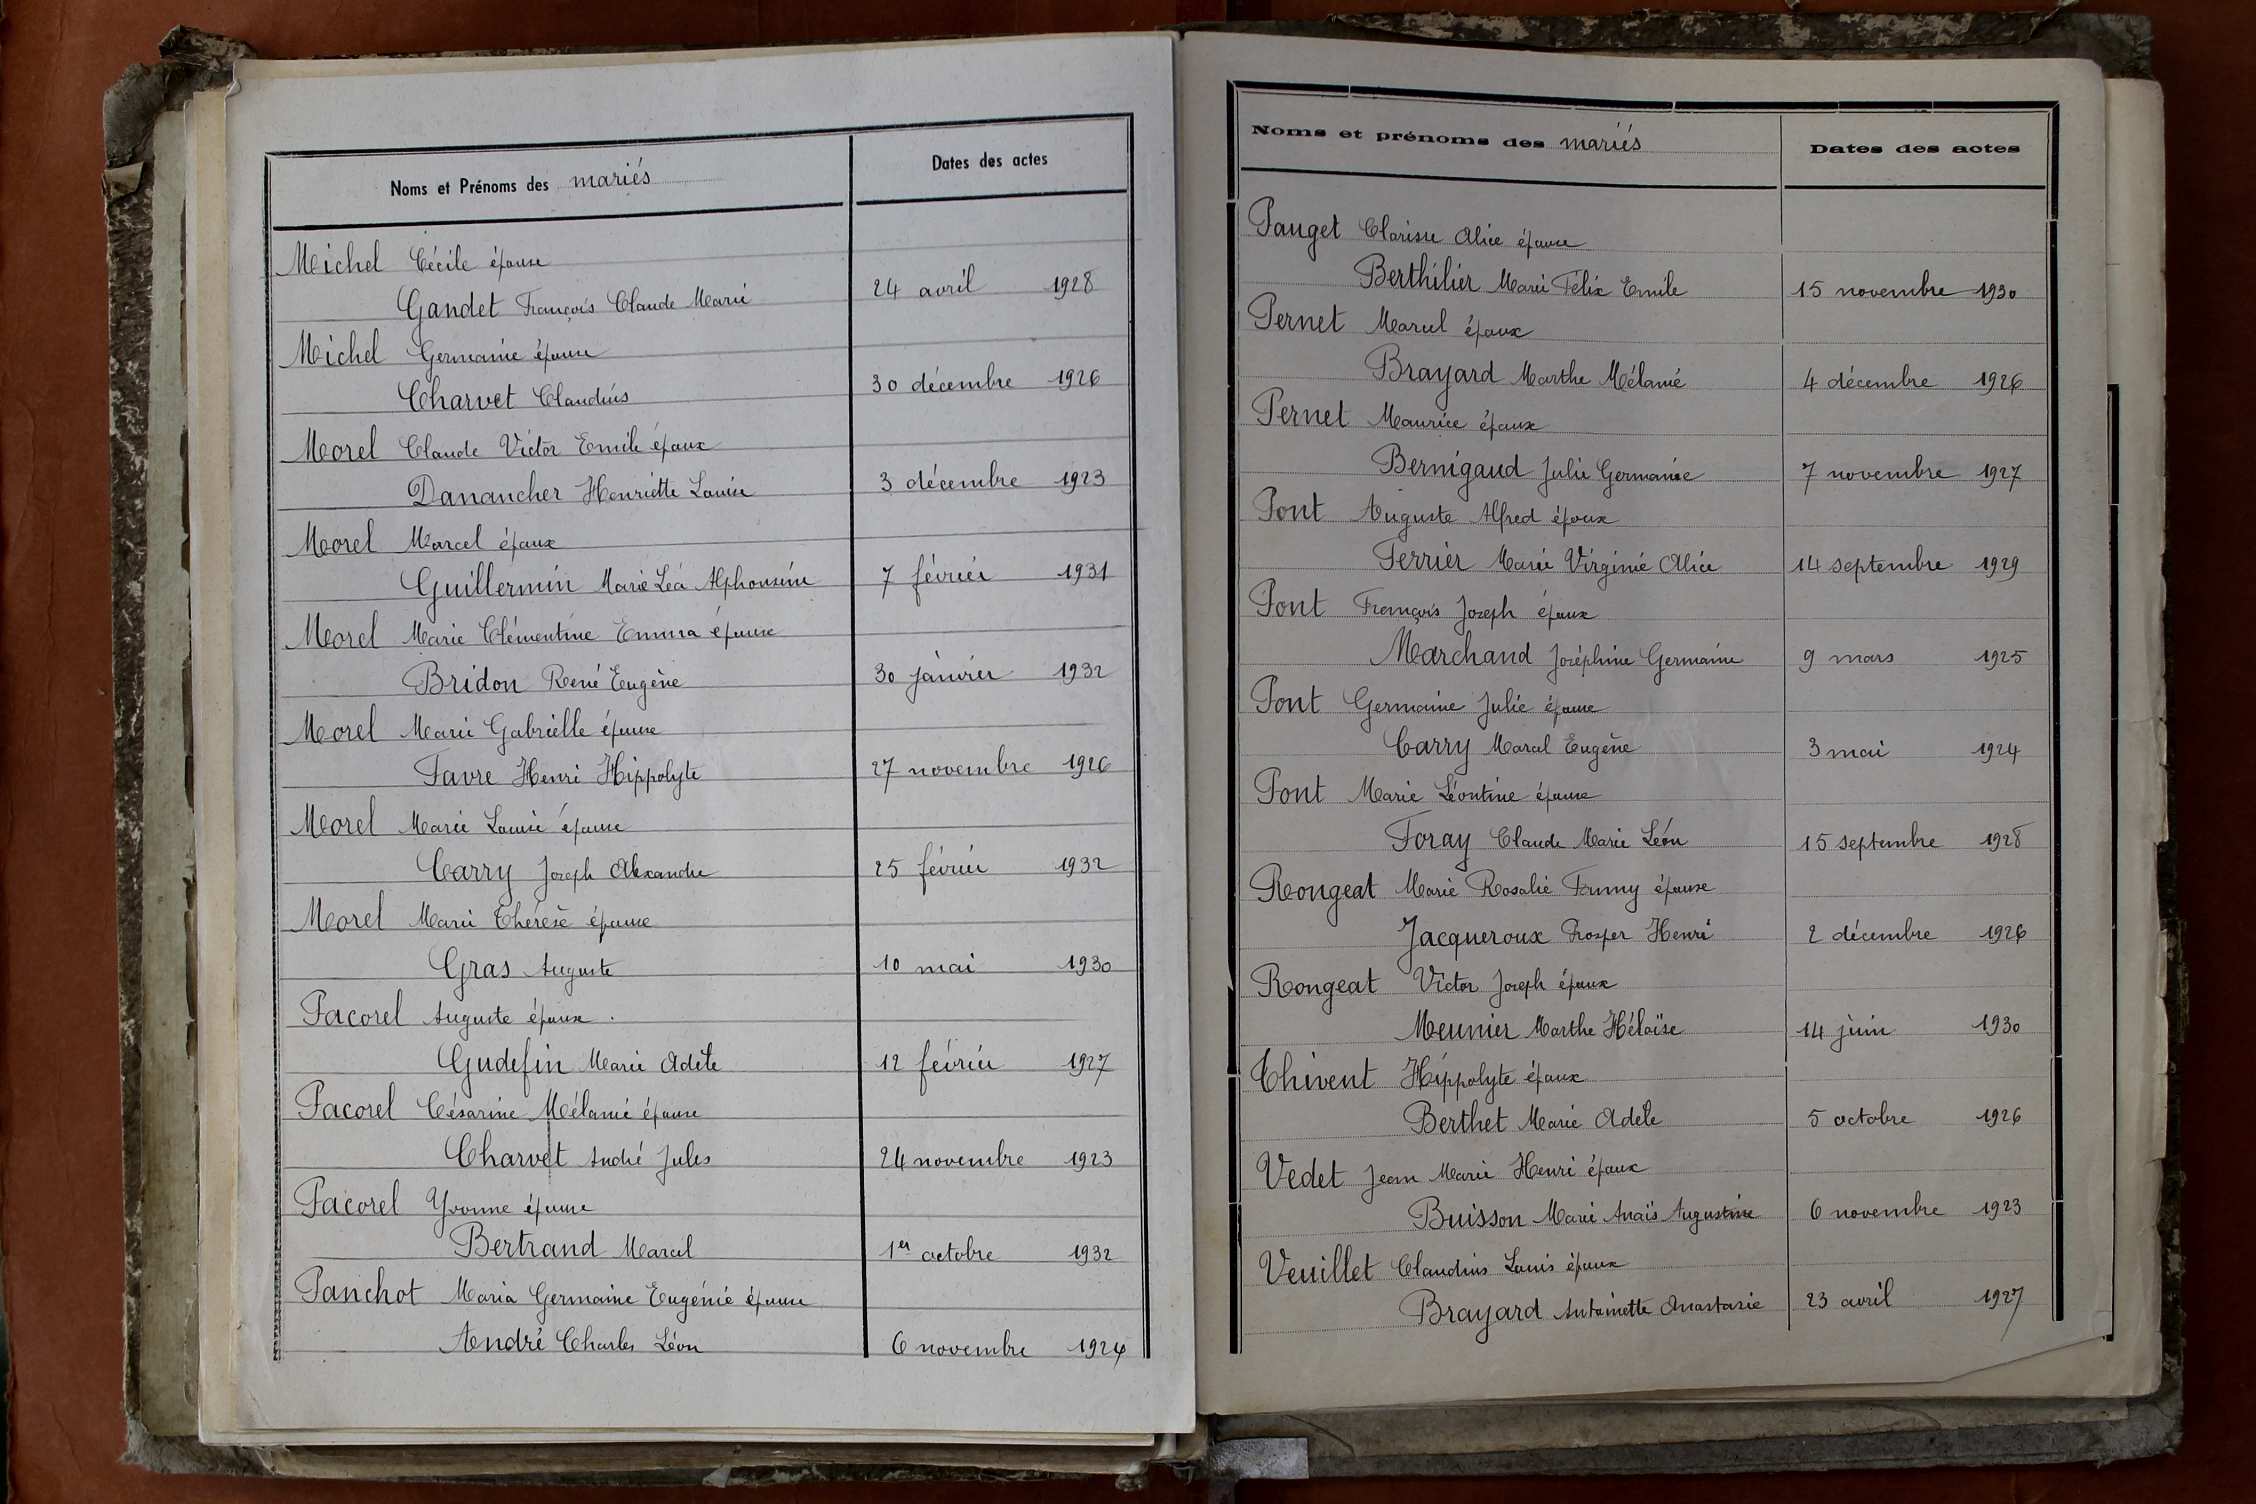 Noms et Prénoms des mariés
Dates des actes
Michel Cécile épouse
Gandet François Claude Marie 24 avril 1928
Michel Germaine épouse
Charvet Claudius 30 décembre 1926
Morel Claude Victor Emile époux
Danancher Henriette Louise 3 décembre 1923
Morel Marcel époux
Guillermin Marie Léa Alphonsine 7 février 1931
Morel Marie Clémentine Emma épouse
Bridon René Eugène 30 janvier 1932
Morel Marie Gabrielle épouse
Favre Henri Hippolyte 27 novembre 1926
Morel Marie Louise épouse
Carry Joseph Alexandre 25 février 1932
Morel Marie Thérèse épouse
Gras Auguste 10 mai 1930
Pacorel Auguste époux
Gudefin Marie Adèle 12 février 1927
Pacorel Césarine Mélanie épouse
Charvet André Jules 24 novembre 1923
Pacorel Yvonne épouse
Bertrand Marcel 1er octobre 1932
Panchot Maria Germaine Eugénie épouse
André Charles Léon 6 novembre 1924
Noms et prénoms des mariés
Dates des actes
Pauget Clarisse Alice épouse
Berthilier Marie Félix Emile 15 novembre 1930
Pernet Marcel époux
Brayard Marthe Mélanie 4 décembre 1926
Pernet Maurice époux
Bernigaud Julie Germanie 7 novembre 1927
Pont Auguste Alfred époux
Perrier Marie Virginie Alice 14 septembre 1929
Pont François Joseph époux
Marchand Joséphine Germaine 9 mars 1925
Pont Germaine Julie épouse
Carry Marcel Eugène 3 mai 1924
Pont Marie Léontine épouse
Foray Claude Marie Léon 15 septembre 1928
Rongeat Marie Rosalie Fanny épouse
Jacqueroux Prosper Henri 2 décembre 1926
Rongeat Victor Joseph époux
Meunier Marthe Héloïse 14 juin 1930
Thivent Hippolyte époux
Berthet Marie Adèle 5 octobre 1926
Vedet Jean Marie Henri époux
Buisson Marie Anaïs Augustine 6 novembre 1923
Veuillet Claudius Louis époux
Brayard Antoinette Anastasie 23 avril 1927